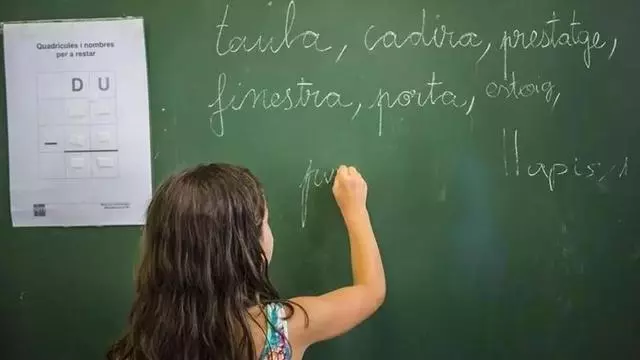 Quadrícules i nombres
per a restar
D U
-
taula, cadira, prestatge,
finestra, porta, estoig,
llapis,